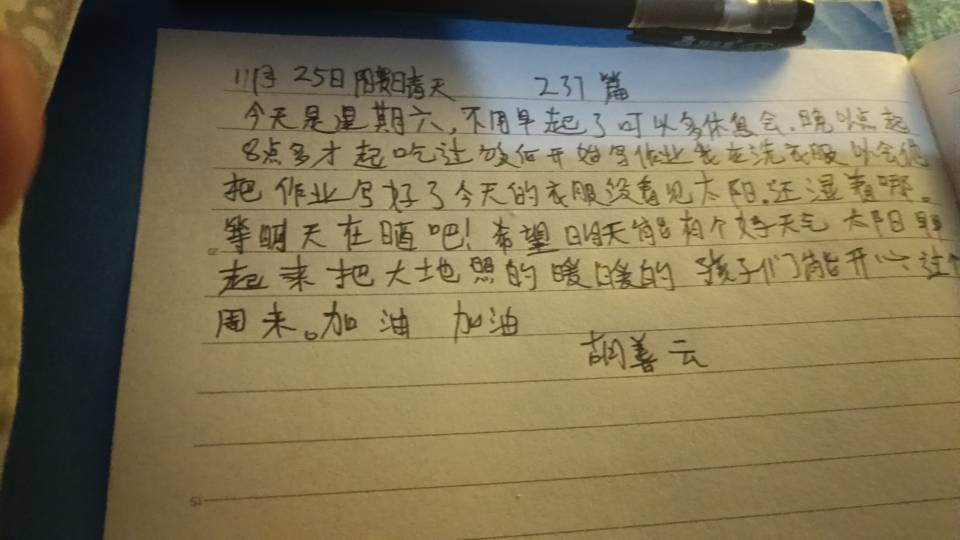 11月25日 阴转晴天 237篇
今天是星期六,不用早起了可以多休息会.晚以点起
8点多才起吃过饭何开始写作业我在洗衣服以会他
把作业写好了今天的衣服没看见太阳.还湿着哪。
等明天在晒吧!希望明天能有个好天气 太阳早早
起来把大地照的暖暖的 孩子们能开心过个
周末。加油 加油
胡善云